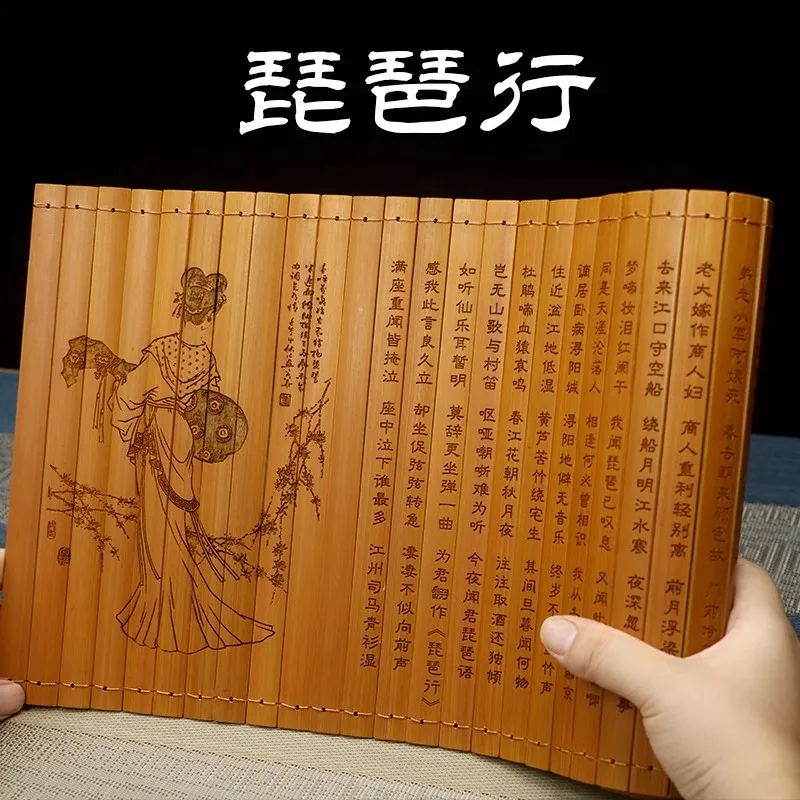 琵琶行
弟走从军阿姨死 暮去朝来颜色故 门前冷
老大嫁作商人妇 商人重利轻别离 前月浮梁
去来江口守空船 绕船月明江水寒 夜深忽 事
梦啼妆泪红阑干 我闻琵琶已叹息 又闻此 唧
同是天涯沦落人 相逢何必曾相识 我从去 京
谪居卧病浔阳城 浔阳地僻无音乐 终岁不 竹声
住近湓江地低湿 黄芦苦竹绕宅生 其间旦暮闻何物
杜鹃啼血猿哀鸣 春江花朝秋月夜 往往取酒还独倾
岂无山歌与村笛 呕哑嘲哳难为听 今夜闻君琵琶语
如听仙乐耳暂明 莫辞更坐弹一曲 为君翻作《琵琶行》
感我此言良久立 却坐促弦弦转急 凄凄不似向前声
满座重闻皆掩泣 座中泣下谁最多 江州司马青衫湿